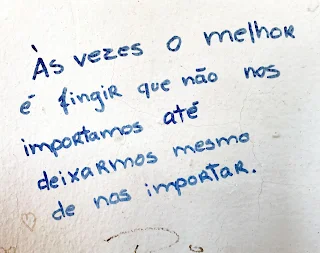 Às vezes o melhor
é fingir que não nos
importamos até
deixarmos mesmo
de nos importar.